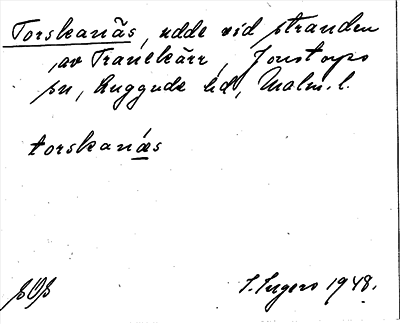 Torskanäs, udde vid stranden
av Tranekärr, Jonstorps
sn, Luggude hd, Malm. l.
torskanäs
S. Ingers 1948.